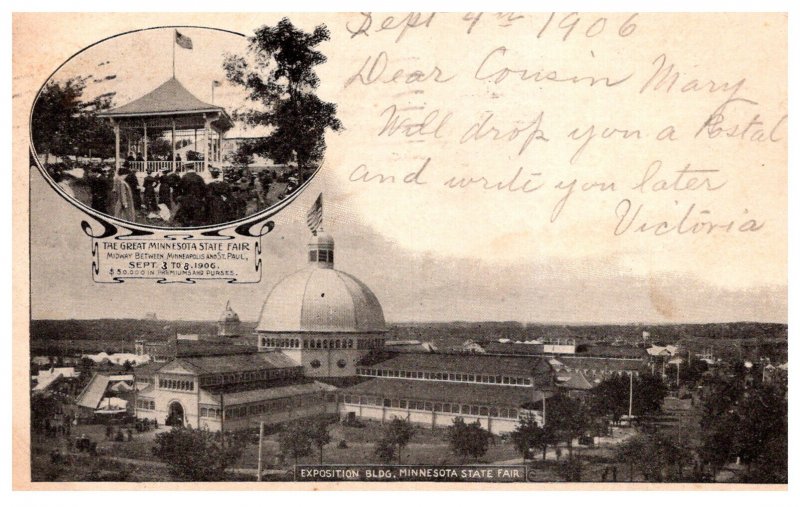 Sept 4th 1906
Dear Cousin Mary
Will drop you a Postal
and write you later
Victoria
THE GREAT MINNESOTA STATE FAIR
MIDWAY BETWEEN MINNEAPOLIS AND ST. PAUL,
SEPT. 3 TO 8, 1906.
$50,000 IN PREMIUMS AND PURSES.
EXPOSITION BLDG, MINNESOTA STATE FAIR